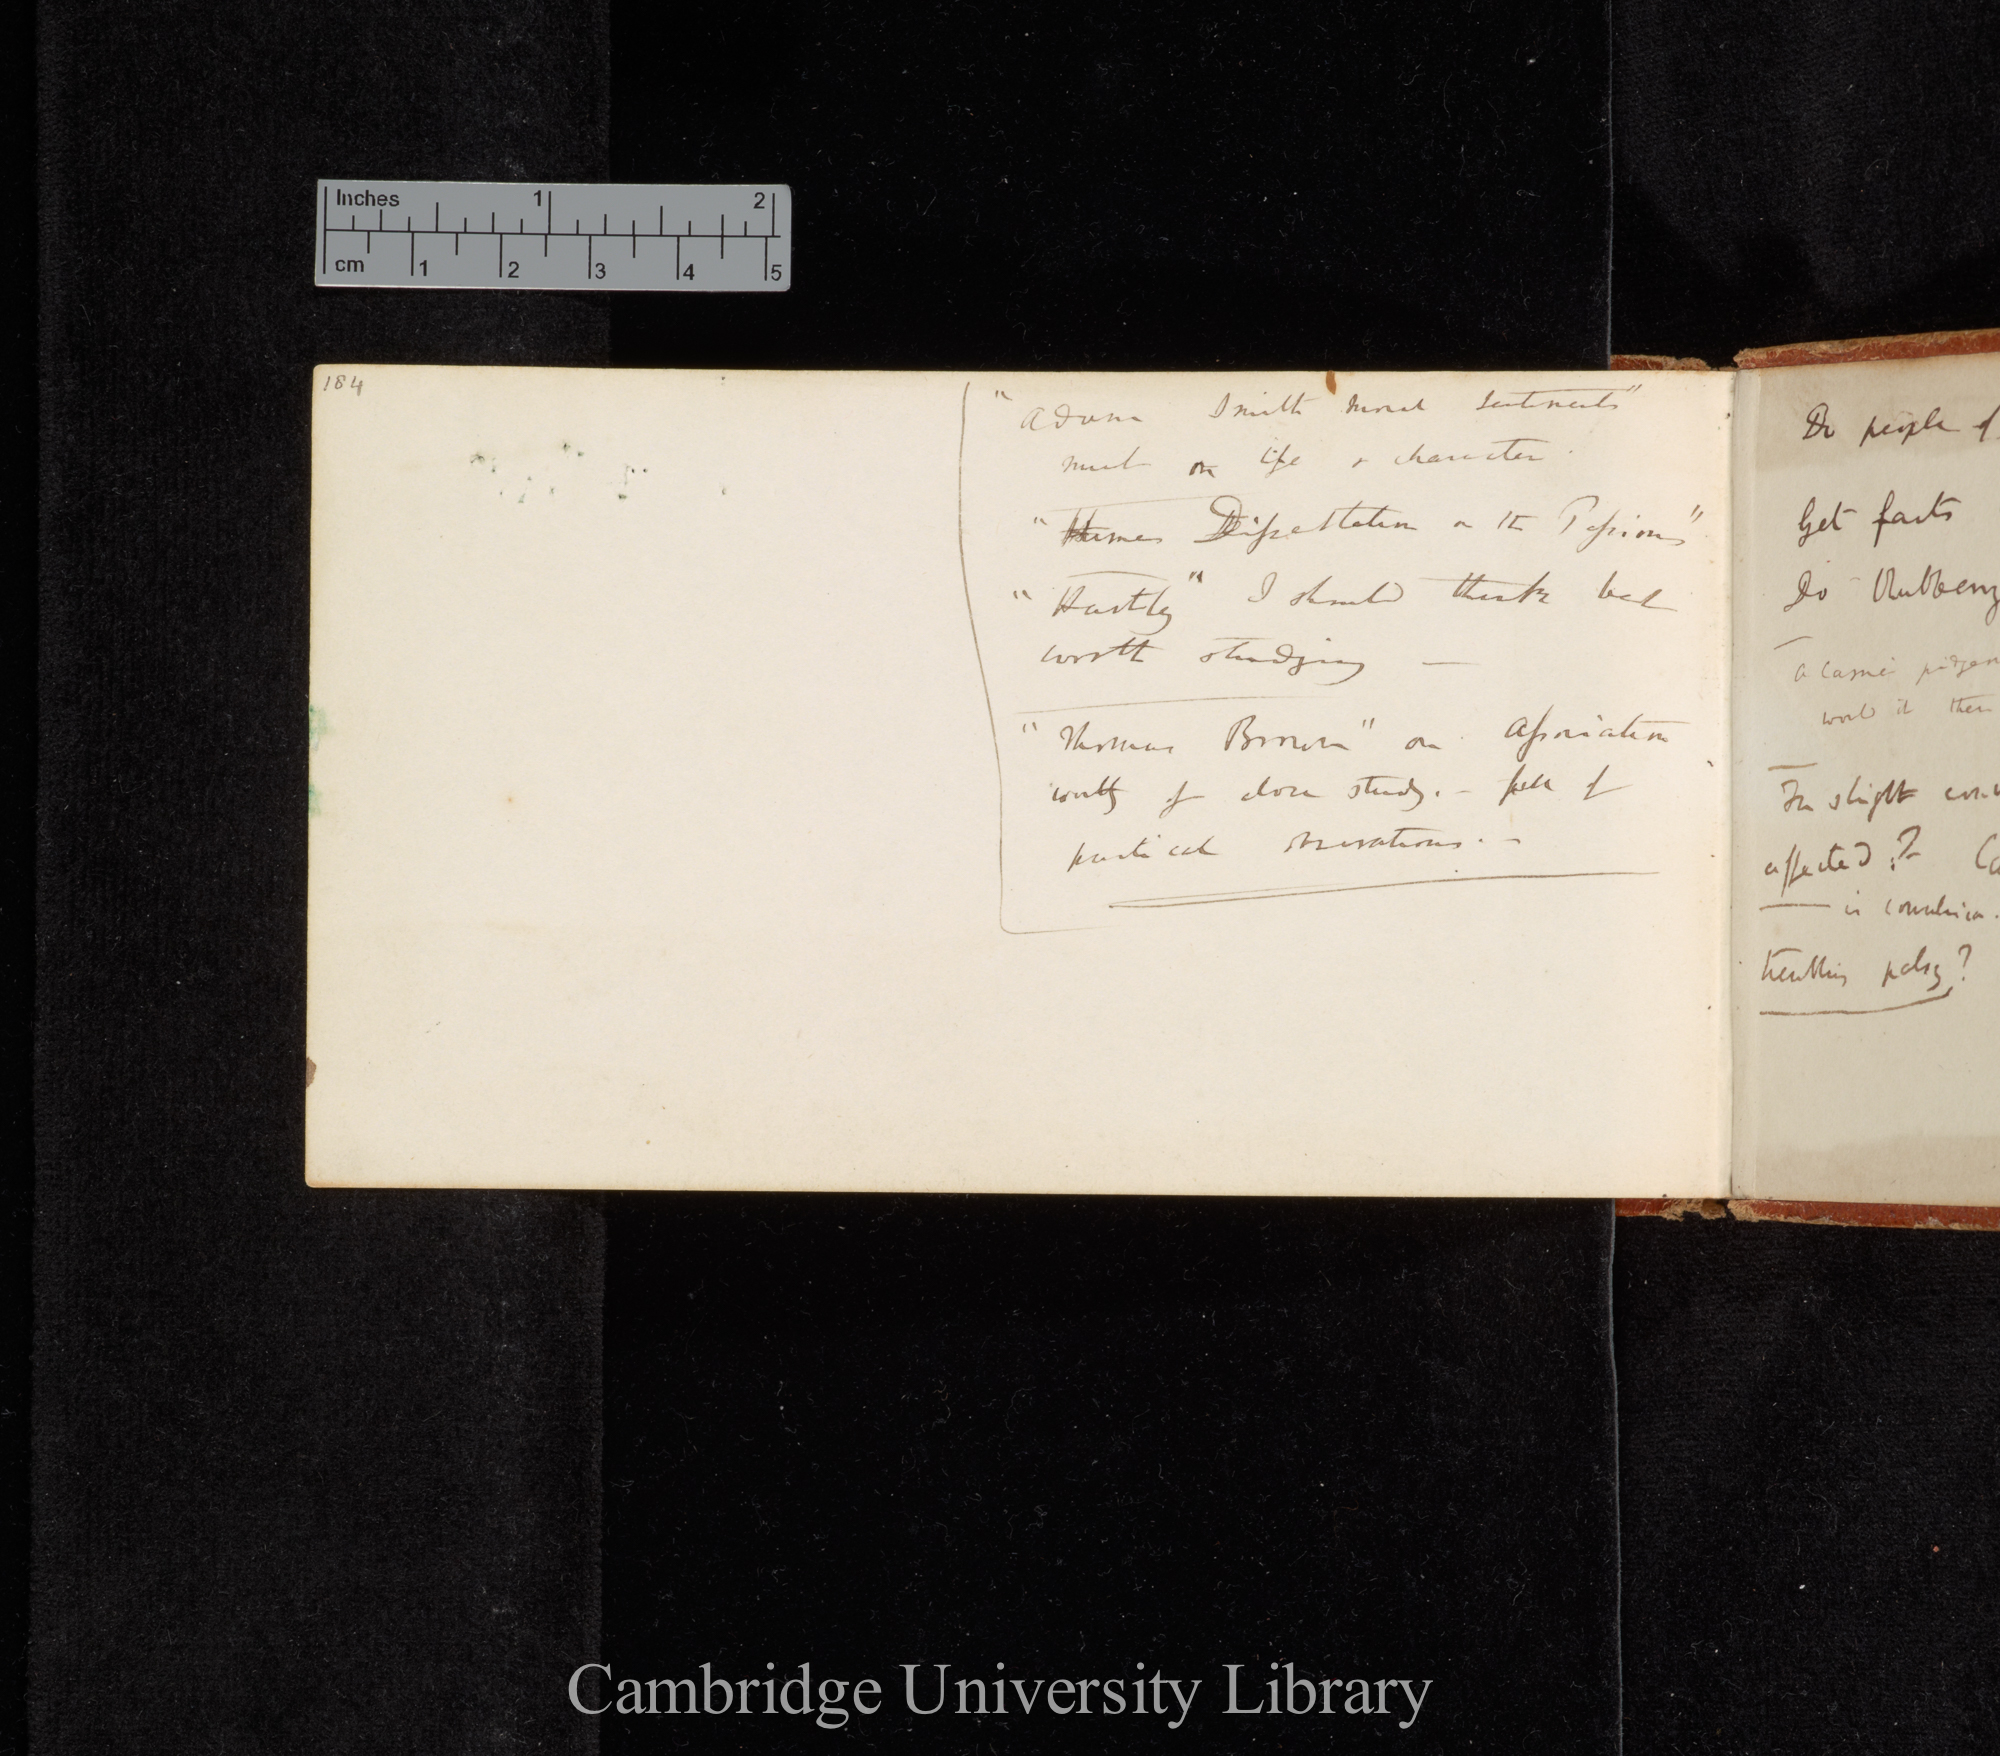 Inches 1 2
cm 1 2 3 4 5
184
"Adam Smith Moral Sentiments"
much on life & character.
"Humes Dissertation on the Passions"
"Hartley" I should think best
worth studying —
"Thomas Brown" on Association
worthy of close study. — full of
practical observations. —
Do people of
Get facts
Do Blubbering
A Carrier pidgeon
would it then
In slight
affected? —
is convulsion.
trembling palsy?
Cambridge University Library